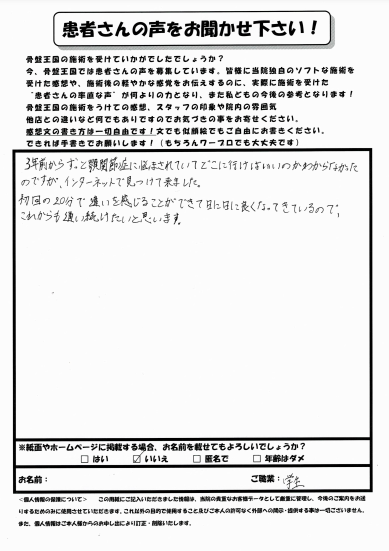 患者さんの声をお聞かせ下さい！
骨盤王国の施術を受けていかがでしたでしょうか？
今、骨盤王国では患者さんの声を募集しています。皆様に当院独自のソフトな施術を
受けた感想や、施術後の軽やかな感覚をお伝えするのに、実際に施術を受けた
“患者さんの率直な声”が何よりの力となり、また私どもの今後の参考となります！
骨盤王国の施術をうけての感想、スタッフの印象や院内の雰囲気
他店との違いなど何でもありますのでお気づきの事をお寄せください。
感想文の書き方は一切自由です！文でも似顔絵でもご自由にお書きください。
できれば手書きでお願いします！（もちろんワープロでも大丈夫です）
3年前からずっと顎関節症に悩まされていてどこに行けばいいのかわからなかった
のですが、インターネットで見つけて来ました。
初回の20分で違いを感じることができて日に日に良くなってきているので、
これからも通い続けたいと思います。
※紙面やホームページに掲載する場合、お名前を載せてもよろしいでしょうか？
□ はい ☑ いいえ □ 匿名で □ 年齢はダメ
お名前： ご職業： 学生
＜個人情報の保護について＞ この用紙にご記入いただきました情報は、当院の貴重なお客様データとして厳重に管理し、今後のご案内をお送
りするためのみに使用させていただきます。これ以外の目的で使用すること及びご本人の許可なく外部への開示・提供する事は一切ございません。
また、個人情報はご本人様からのお申し出により訂正・削除いたします。